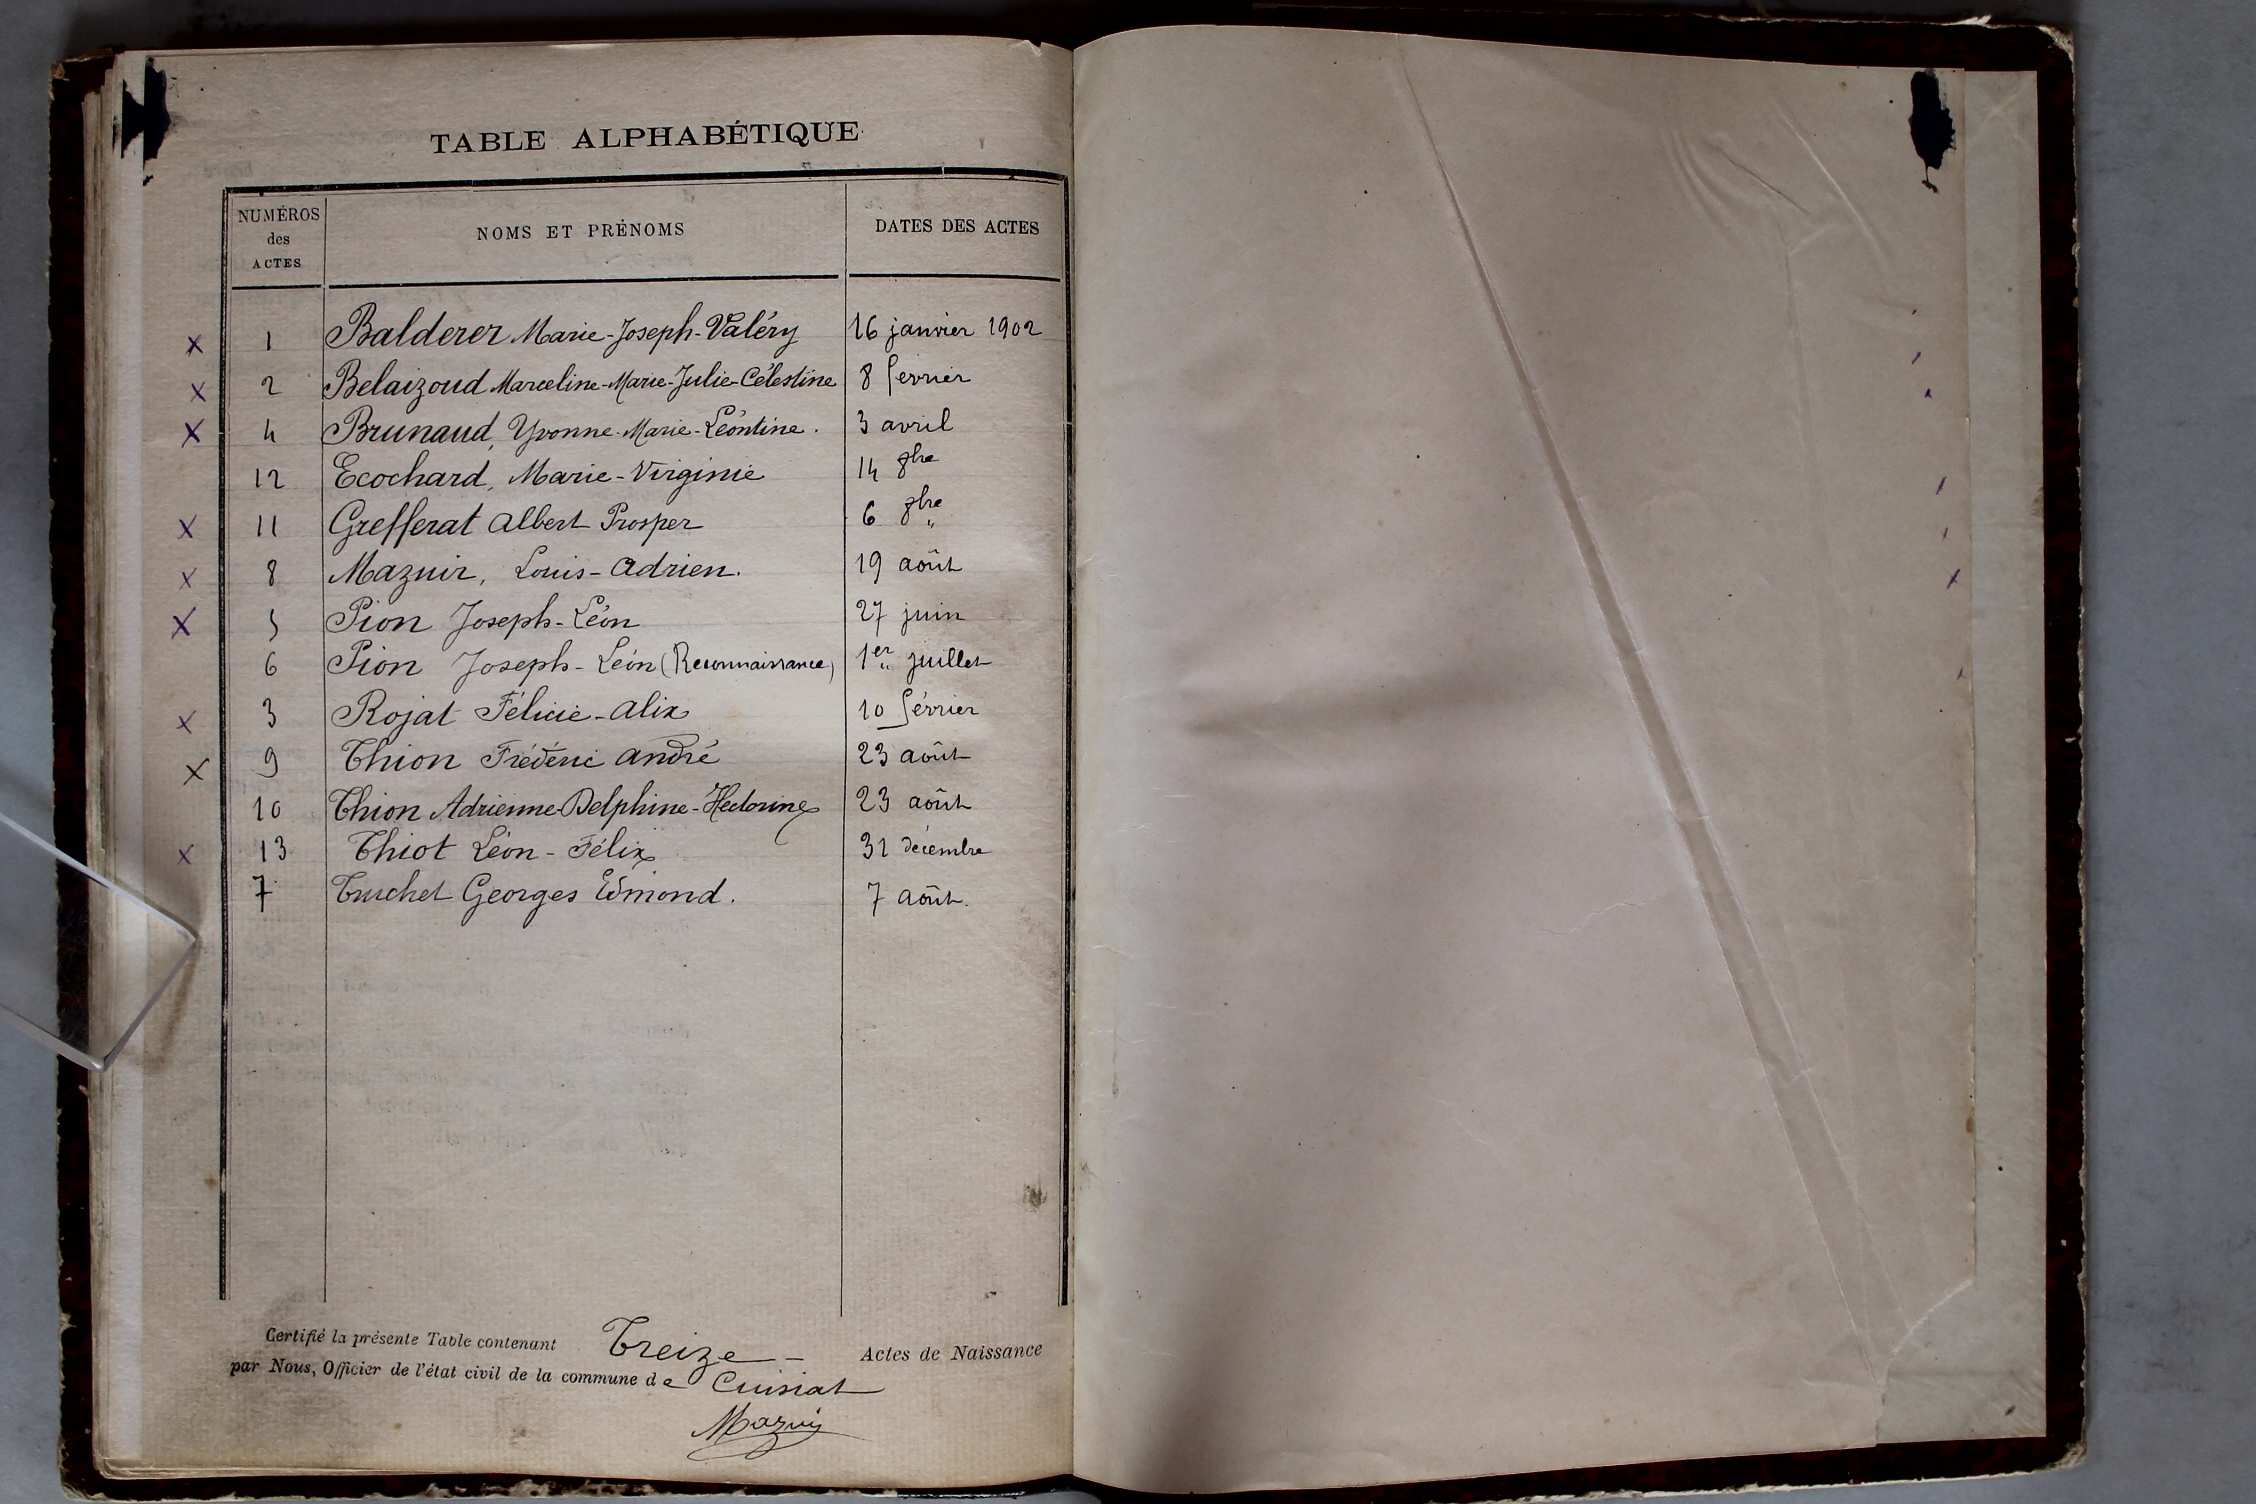 TABLE ALPHABÉTIQUE
NUMÉROS des ACTES NOMS ET PRÉNOMS DATES DES ACTES
x 1 Balderer Marie-Joseph-Valéry 16 janvier 1902
x 2 Belaizoud Marceline-Marie-Julie-Célestine 8 février
x 4 Brunaud, Yvonne-Marie-Léontine. 3 avril
12 Ecochard, Marie-Virginie 14 8bre
x 11 Grefferat Albert Prosper 6 8bre
x 8 Mazuir, Louis-Adrien. 19 août
x 5 Pion Joseph-Léon 27 juin
6 Pion Joseph-Léon (Reconnaissance) 1er juillet
x 3 Rojat Félicie-Alix 10 février
x 9 Thion Frédéric André 23 août
10 Thion Adrienne-Delphine-Hectorine 23 août
x 13 Thiot Léon-Félix 31 décembre
7 Truchet Georges Edmond. 7 août.
Certifié la présente Table contenant Treize - Actes de Naissance
par Nous, Officier de l'état civil de la commune de Cuisiat
Mazuir